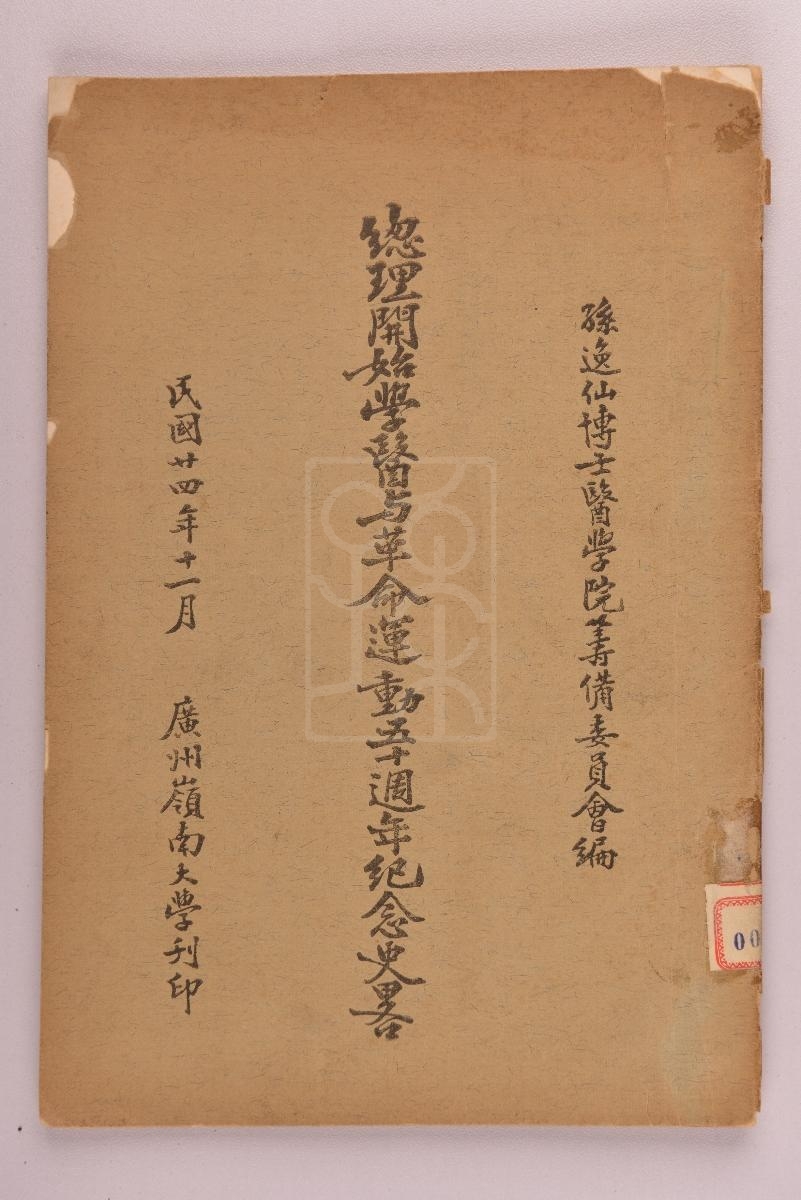 孫逸仙博士醫學院籌備委員會編
總理開始學醫与革命運動五十週年紀念史畧
民國廿四年十一月 廣州嶺南大學刊印
00